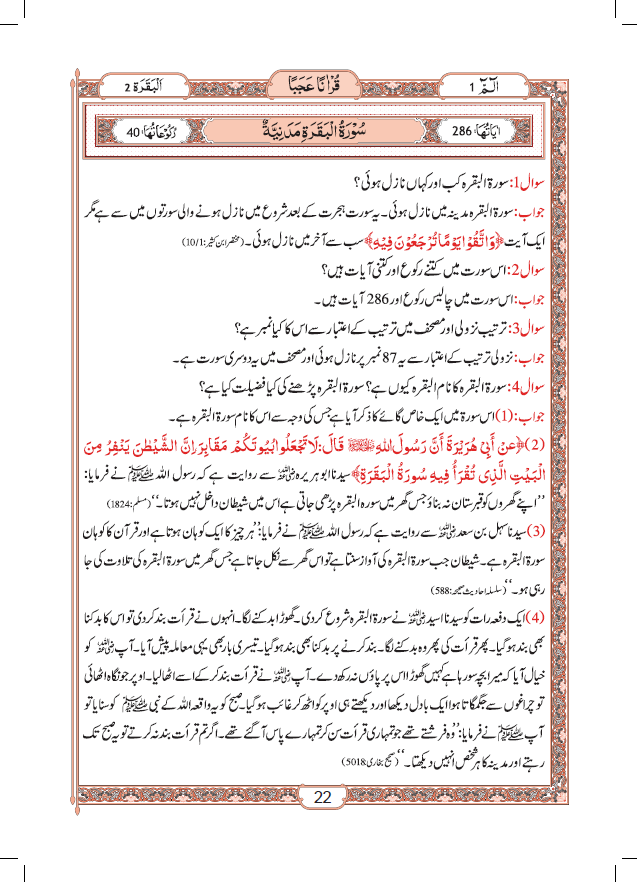 الٓمّٓ 1
قُرْاٰنًا عَجَبًا
اَلْبَقَرَة 2
اٰيَاتُهَا: 286
سُوْرَةُ الْبَقَرَةِ مَدَنِيَّةٌ
رُكُوْعَاتُهَا: 40
سوال1: سورۃ البقرہ کب اور کہاں نازل ہوئی؟
جواب: سورۃ البقرہ مدینہ میں نازل ہوئی۔ یہ سورت ہجرت کے بعد شروع میں نازل ہونے والی سورتوں میں سے ہے مگر
ایک آیت ﴿وَاتَّقُوْا يَوْمًا تُرْجَعُوْنَ فِيْهِ﴾ سب سے آخر میں نازل ہوئی۔ (مختصر ابن کثیر: 10/1)
سوال2: اس سورت میں کتنے رکوع اور کتنی آیات ہیں؟
جواب: اس سورت میں چالیس رکوع اور 286 آیات ہیں۔
سوال3: ترتیب نزولی اور مُصحف میں ترتیب کے اعتبار سے اس کا کیا نمبر ہے؟
جواب: نزولی ترتیب کے اعتبار سے یہ 87 نمبر پر نازل ہوئی اور مصحف میں یہ دوسری سورت ہے۔
سوال4: سورۃ البقرہ کا نام البقرہ کیوں ہے؟ سورۃ البقرہ پڑھنے کی کیا فضیلت کیا ہے؟
جواب: (1) اس سورۃ میں ایک خاص گائے کا ذکر آیا ہے جس کی وجہ سے اس کا نام سورۃ البقرہ ہے۔
(2) ﴿عَنْ أَبِيْ هُرَيْرَةَ أَنَّ رَسُولَ اللهِ ﷺ قَالَ: لَا تَجْعَلُوا بُيُوتَكُمْ مَقَابِرَ إِنَّ الشَّيْطٰنَ يَنْفِرُ مِنَ
الْبَيْتِ الَّذِي تُقْرَأُ فِيهِ سُورَةُ الْبَقَرَةِ﴾ سیدنا ابو ہریرہ رضی اللہ عنہ سے روایت ہے کہ رسول اللہ ﷺ نے فرمایا:
’’اپنے گھروں کو قبرستان نہ بناؤ جس گھر میں سورہ البقرہ پڑھی جاتی ہے اس میں شیطان داخل نہیں ہوتا۔‘‘ (مسلم: 1824)
(3) سیدنا سہل بن سعد رضی اللہ عنہ سے روایت ہے کہ رسول اللہ ﷺ نے فرمایا: ’’ہر چیز کا ایک کوہان ہوتا ہے اور قرآن کا کوہان
سورۃ البقرہ ہے۔ شیطان جب سورۃ البقرہ کی آواز سنتا ہے تو اس گھر سے نکل جاتا ہے جس گھر میں سورۃ البقرہ کی تلاوت کی جا
رہی ہو۔‘‘ (سلسلہ احادیث صحیحہ: 588)
(4) ایک دفعہ رات کو سیدنا اسید رضی اللہ عنہ نے سورۃ البقرہ شروع کر دی۔ گھوڑا بدکنے لگا۔ انہوں نے قرأت بند کر دی تو اس کا بدکنا
بھی بند ہوگیا۔ پھر قرأت کی پھر وہ بدکنے لگا۔ بند کرنے پر بدکنا بھی بند ہوگیا۔ تیسری بار بھی یہی معاملہ پیش آیا۔ آپ رضی اللہ عنہ کو
خیال آیا کہ میرا بچہ سو رہا ہے کہیں گھوڑا اس پر پاؤں نہ رکھ دے۔ آپ رضی اللہ عنہ نے قرأت بند کر کے اسے اٹھا لیا۔ اوپر جو نگاہ اٹھائی
تو چراغوں سے جگمگاتا ہوا ایک بادل دیکھا اور دیکھتے ہی اوپر کو اٹھ کر غائب ہوگیا۔ صبح کو یہ واقعہ اللہ کے نبی ﷺ کو سنایا تو
آپ ﷺ نے فرمایا: ’’وہ فرشتے تھے جو تمہاری قرأت سن کر تمہارے پاس آگئے تھے۔ اگر تم قرأت بند نہ کرتے تو یہ صبح تک
رہتے اور مدینہ کا ہر شخص انہیں دیکھتا۔‘‘ (صحیح بخاری: 5018)
22